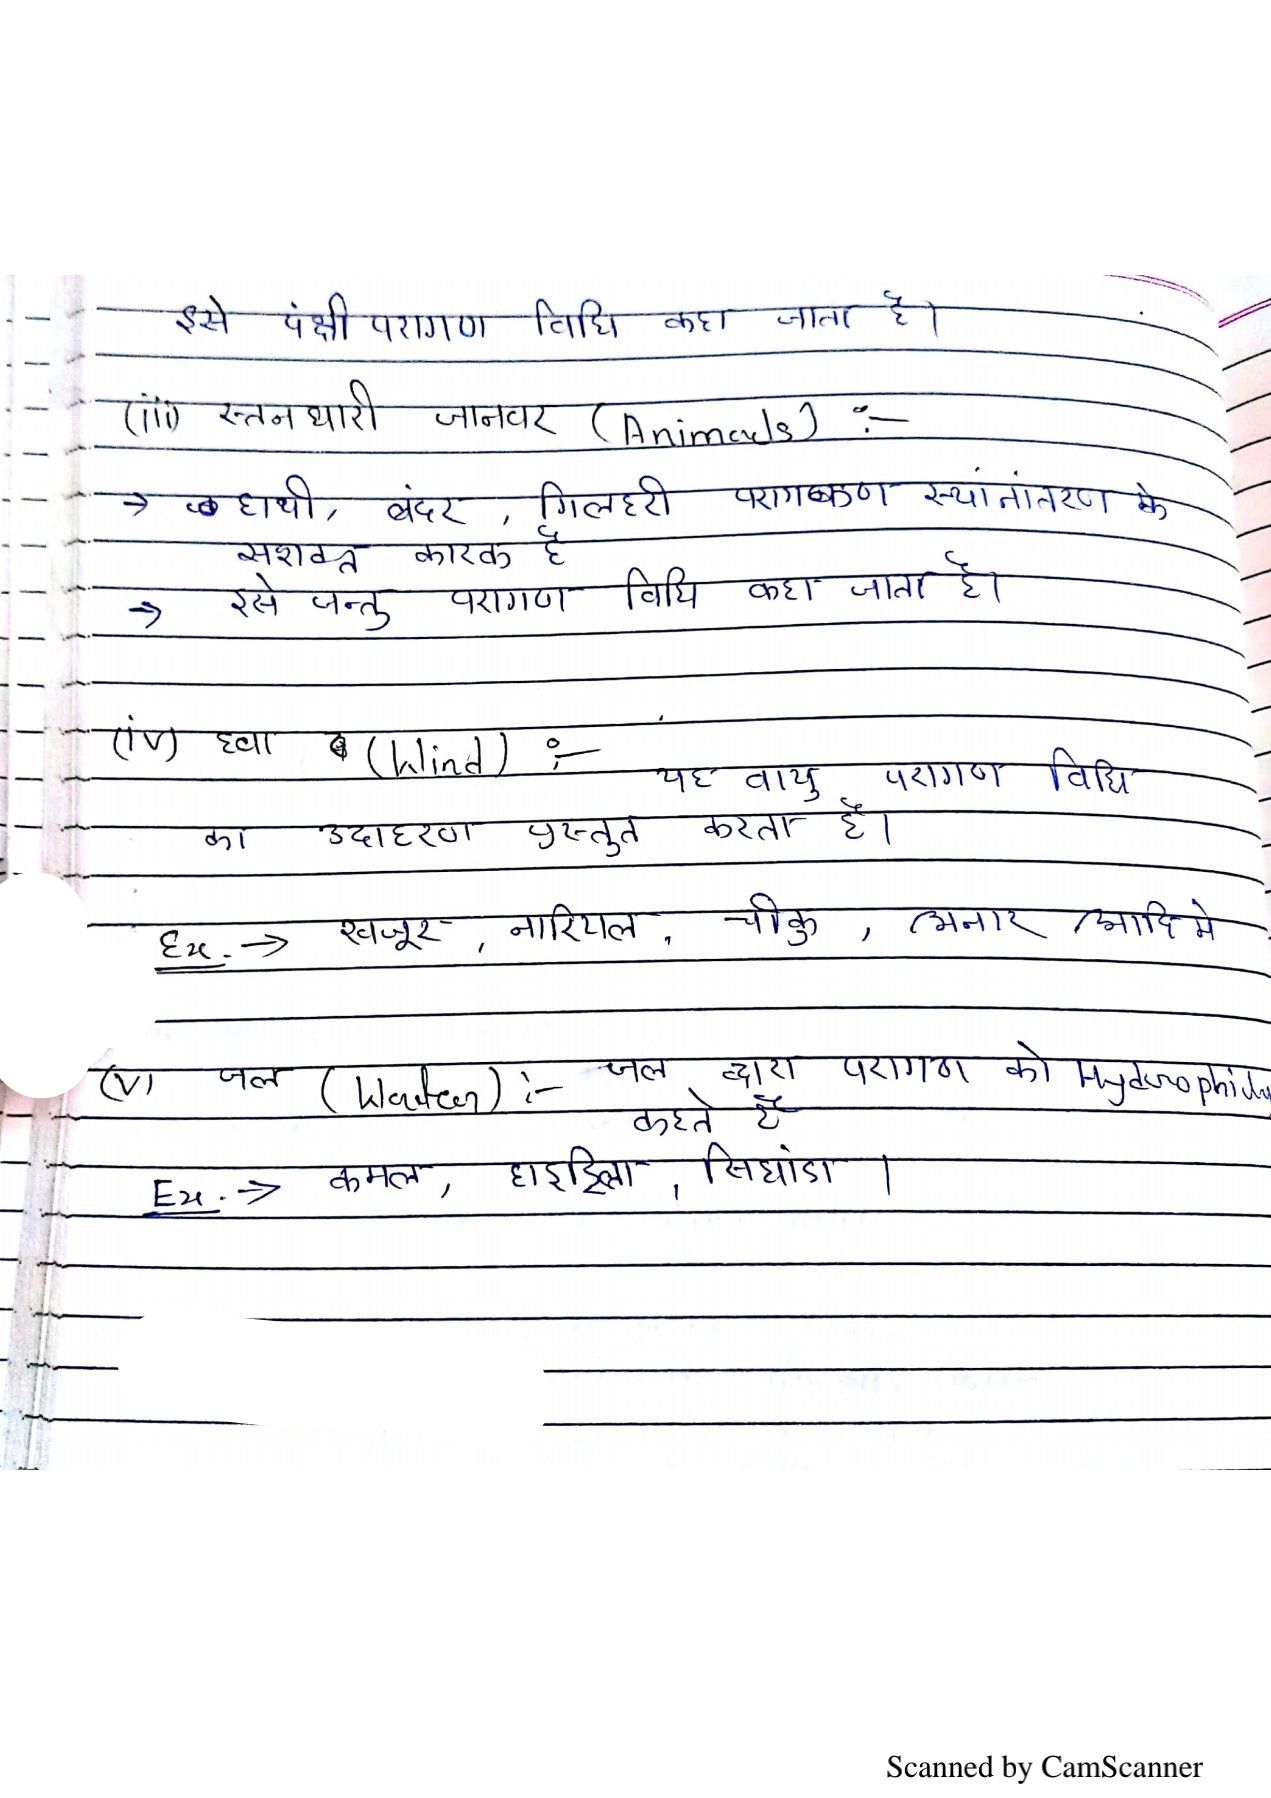 इसे पंक्षी परागण विधि कहा जाता है।
(iii) स्तनधारी जानवर (Animals) :-
→ हाथी, बंदर, गिलहरी परागकण स्थांनांतरण के
सशक्त कारक है
→ इसे जन्तु परागण विधि कहा जाता है।
(iv) हवा (Wind) :-
यह वायु परागण विधि
का उदाहरण प्रस्तुत करता है।
Ex. → खजूर, नारियल, चीकु, अनार आदि मे
(v) जल (Water) :- जल द्वारा परागण को Hydrophily
कहते है
Ex. → कमल, हाइड्रिला, सिघांडा।
Scanned by CamScanner